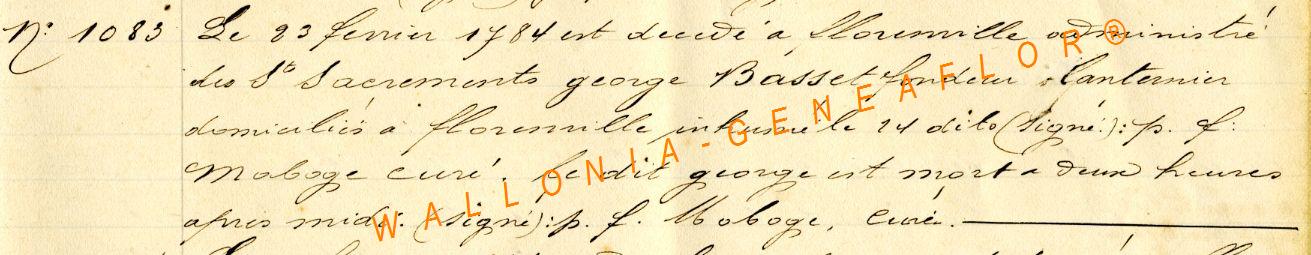 N° 1083 Le 23 fevrier 1784 est decedé a florenville administré
des Sts Sacrements george Basset fondeur Lanternier
domiciliés a florenville inhumé le 24 dito (signé): p. f:
Moboge curé. Le dit george est mort a deux heures
apres midi: (signé): p. f. Moboge, Curé.
WALLONIA-GENEAFLOR®